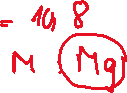 = 10, 8
M Mg